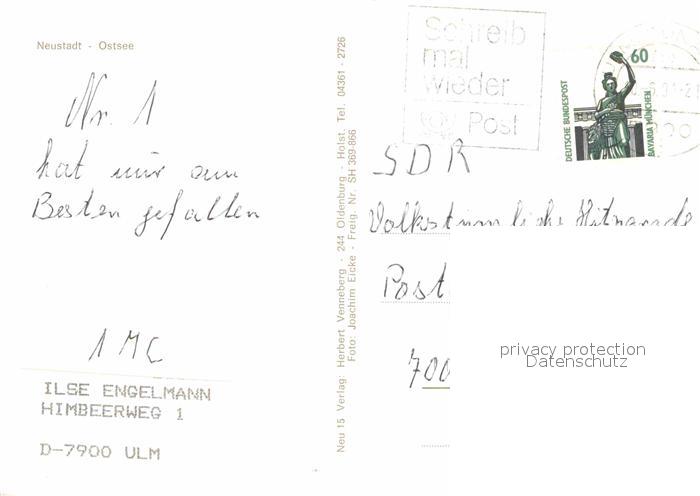 Neustadt - Ostsee
Nr. 1
hat mir am
Besten gefallen
1 MC
ILSE ENGELMANN
HIMBEERWEG 1
D-7900 ULM
Neu 15 Verlag: Herbert Venneberg - 244 Oldenburg - Holst. Tel. 04361 - 2726
Foto: Joachim Eicke - Freig. Nr. SH 369-866
Schreib
mal
wieder
Post
60
DEUTSCHE BUNDESPOST
BAVARIA MÜNCHEN
SDR
Volkstümliche Hitparade
Post
700
privacy protection
Datenschutz